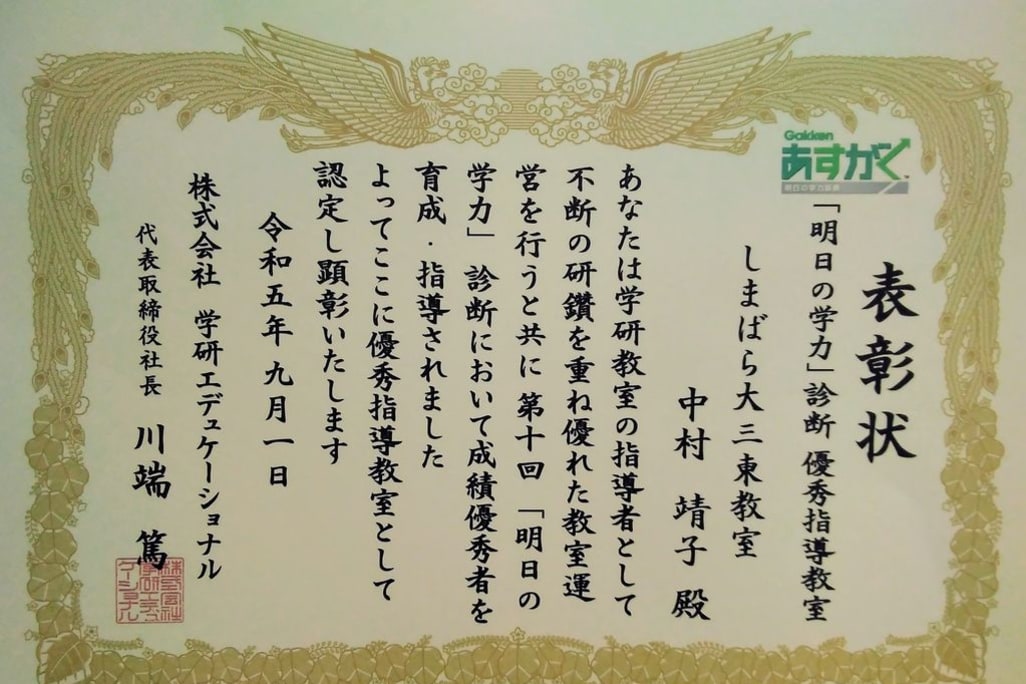 表彰状
Gakken
あすがく
明日の学力診断
「明日の学力」診断 優秀指導教室
しまばら大三東教室
中村 靖子 殿
あなたは学研教室の指導者として
不断の研鑽を重ね優れた教室運
営を行うと共に 第十回「明日の
学力」診断において成績優秀者を
育成・指導されました
よってここに優秀指導教室として
認定し顕彰いたします
令和五年 九月一日
株式会社 学研エデュケーショナル
代表取締役社長 川端 篤